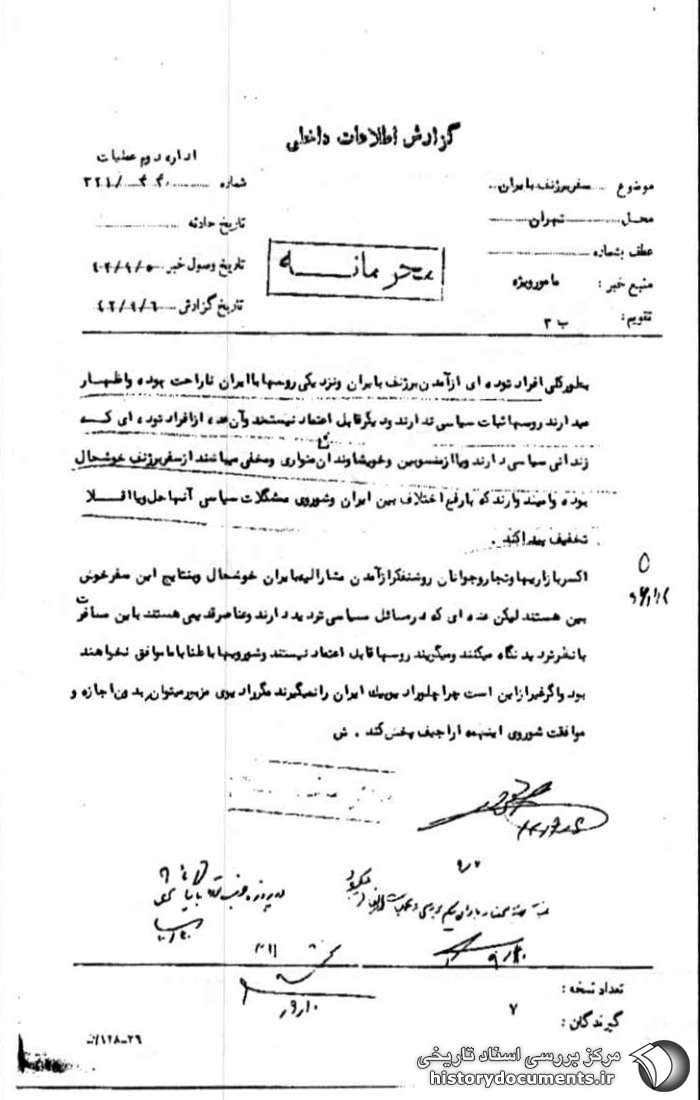 گزارش اطلاعات داخلی
اداره دوم عملیات
موضوع سفر برژنف بایران
شماره ۳۲۱/۴۴۰
محل تهران
تاریخ حادثه
عطف بشماره
محرمانه
تاریخ وصول خبر ۴۲/۹/۵
منبع خبر : مامور ویژه
تاریخ گزارش ۴۲/۹/۶
تقویم : ب ۳
بطور کلی افراد توده ای از آمدن برژنف بایران و نزدیکی روسها با ایران ناراحت بوده و اظهار
میدارند روسها ثبات سیاسی ندارند و دیگر قابل اعتماد نیستند و آن عده از افراد توده ای که
زندانی سیاسی دارند و یا از منسوبین و خویشاوندان متواری و مخفی میباشند از سفر برژنف خوشحال
بوده و امیدوارند که با رفع اختلاف بین ایران و شوروی مشگلات سیاسی آنها حل و یا اقلا
تخفیف پیدا کند .
اکسر بازاریها و تجار و جوانان روشنفکر از آمدن مشارالیه بایران خوشحال و بنتایج این سفر خوش
بین هستند لیکن عده ای که در مسائل سیاسی تردید دارند و عناصر قدیمی هستند باین مسافرت
با نظر تردید نگاه میکنند و میگویند روسها قابل اعتماد نیستند و شورویها باطنا با ما موافق نخواهند
بود و اگر غیر از این است چرا جلو رادیو پیک ایران را نمیگیرند مگر رادیوی مزبور میتواند بدون اجازه و
موافقت شوروی اینهمه اراجیف پخش کند . ش
تعداد نسخه :
گیرندگان : ۷
۲۶-۱۲۸/
مرکز بررسی اسناد تاریخی
historydocuments.ir